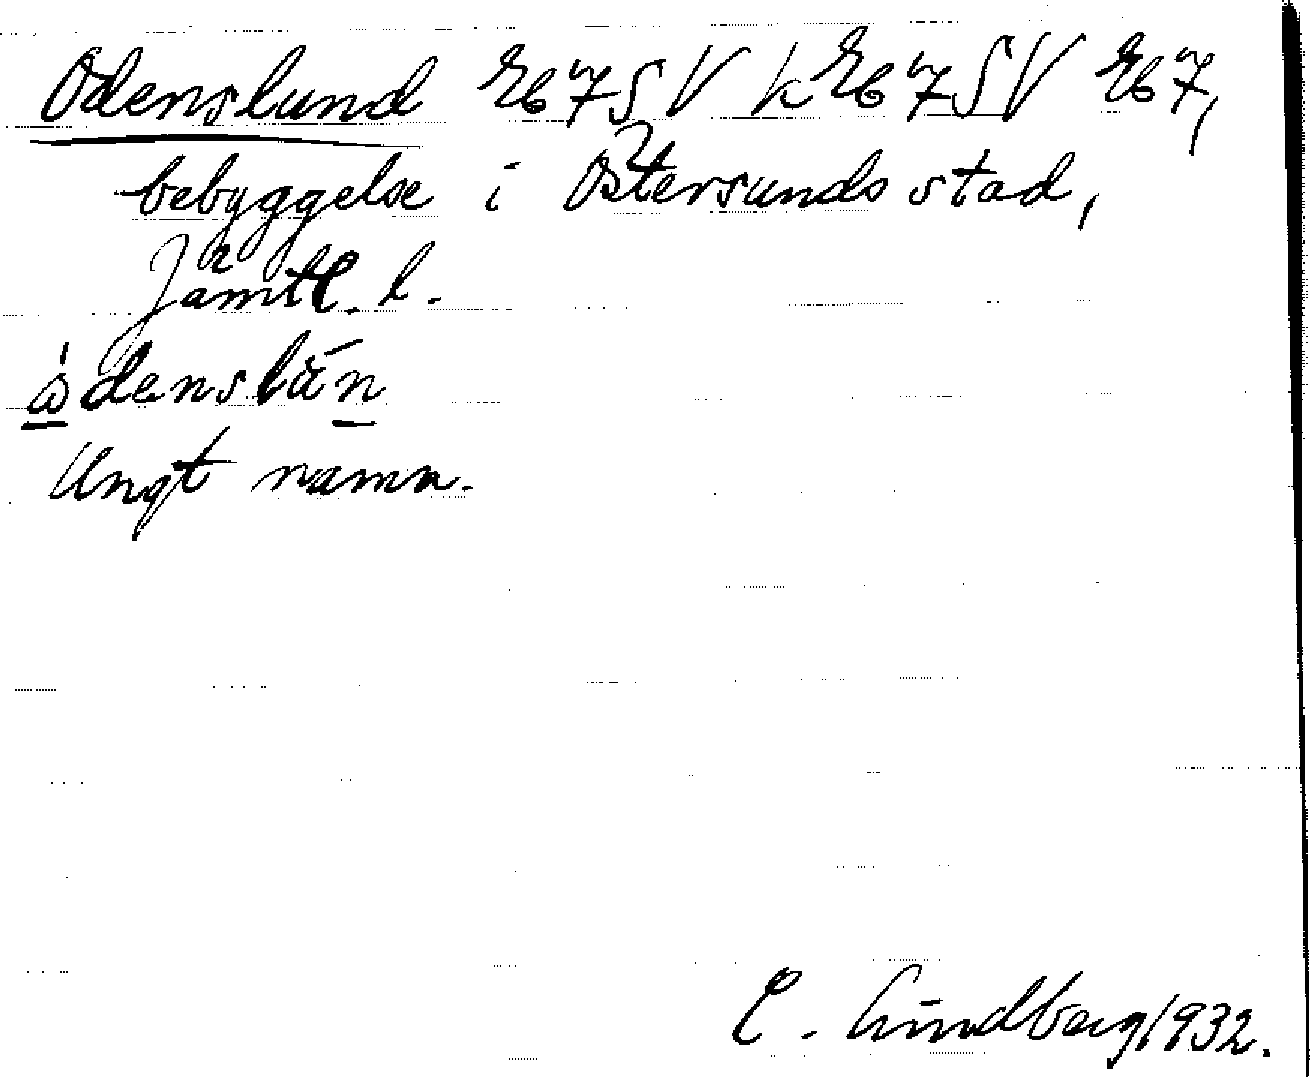 Odenslund Rb 7 SV k Rb 7 SV Rb 7,
bebyggelse i Östersunds stad,
Jämtl. l.
Ungt namn.
E. Lindberg 1932.